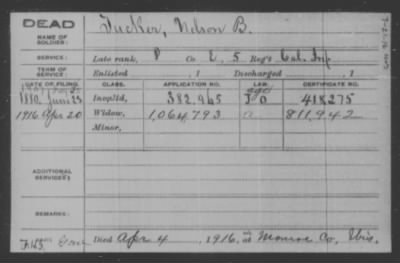 DEAD
NAME OF SOLDIER: Tucker, Nelson B.
SERVICE: Late rank, P Co E, 5 Reg't Cal. Inf
TERM OF SERVICE: Enlisted , 1 Discharged , 1
DATE OF FILING. CLASS. APPLICATION NO. LAW. CERTIFICATE NO.
1880 June 23 Invalid, 382.965 418275
1916 Apr 20 Widow, 1,064,793 a 811,942
Minor,
ADDITIONAL SERVICES:
REMARKS:
Died Apr 4, 1916, at Monroe Co, Wis.